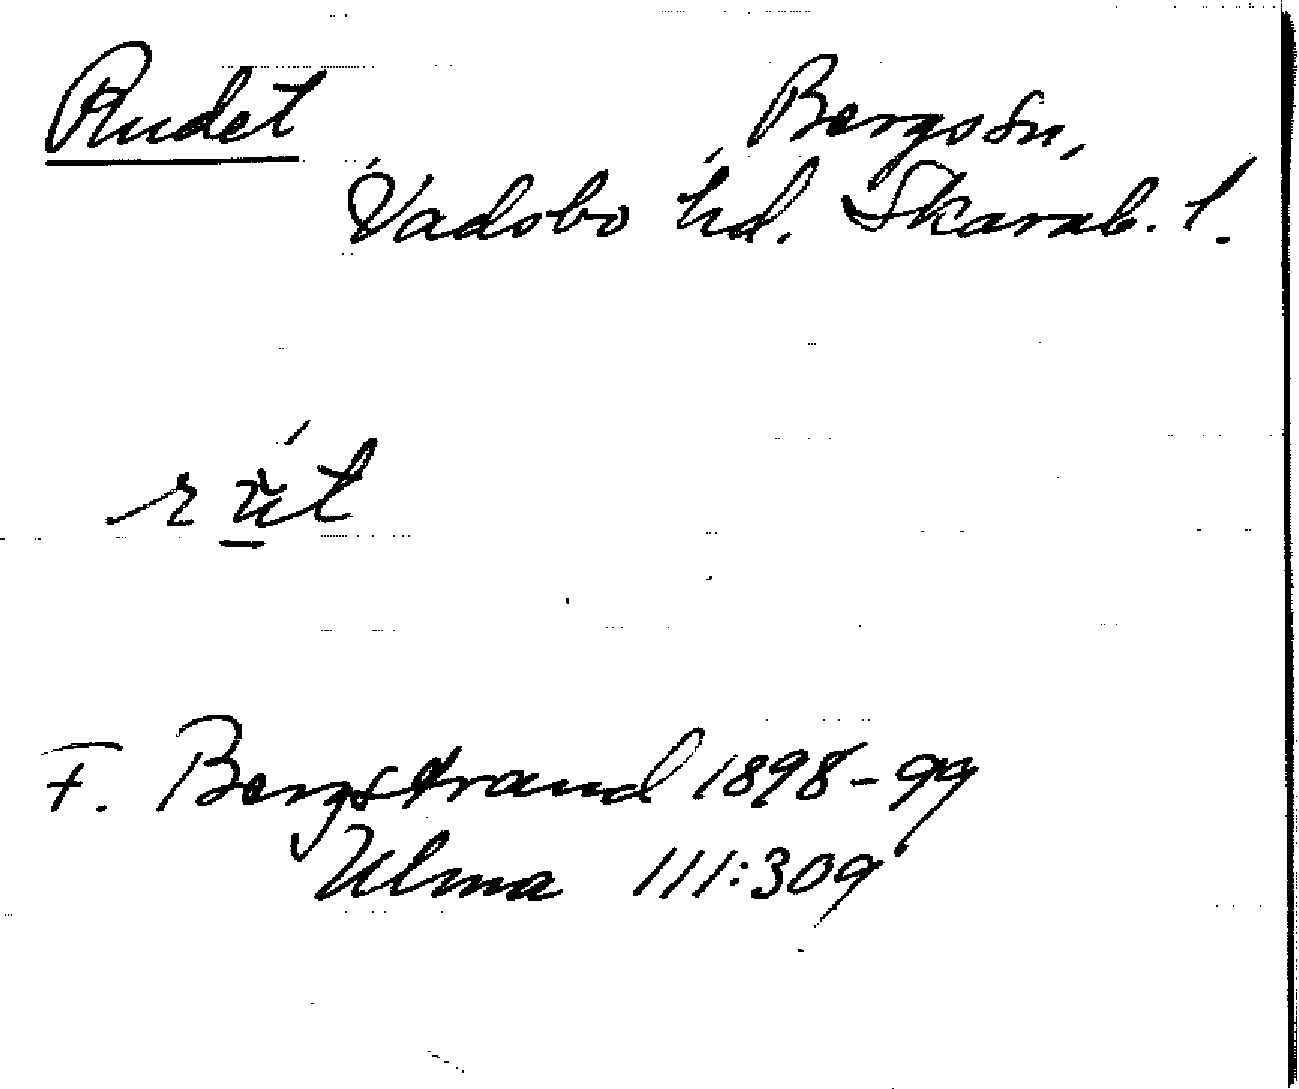 Rudet Bergs sn,
Vadsbo hd. Skarab. l.
rút
F. Bergstrand 1898-99
Ulma 111:309